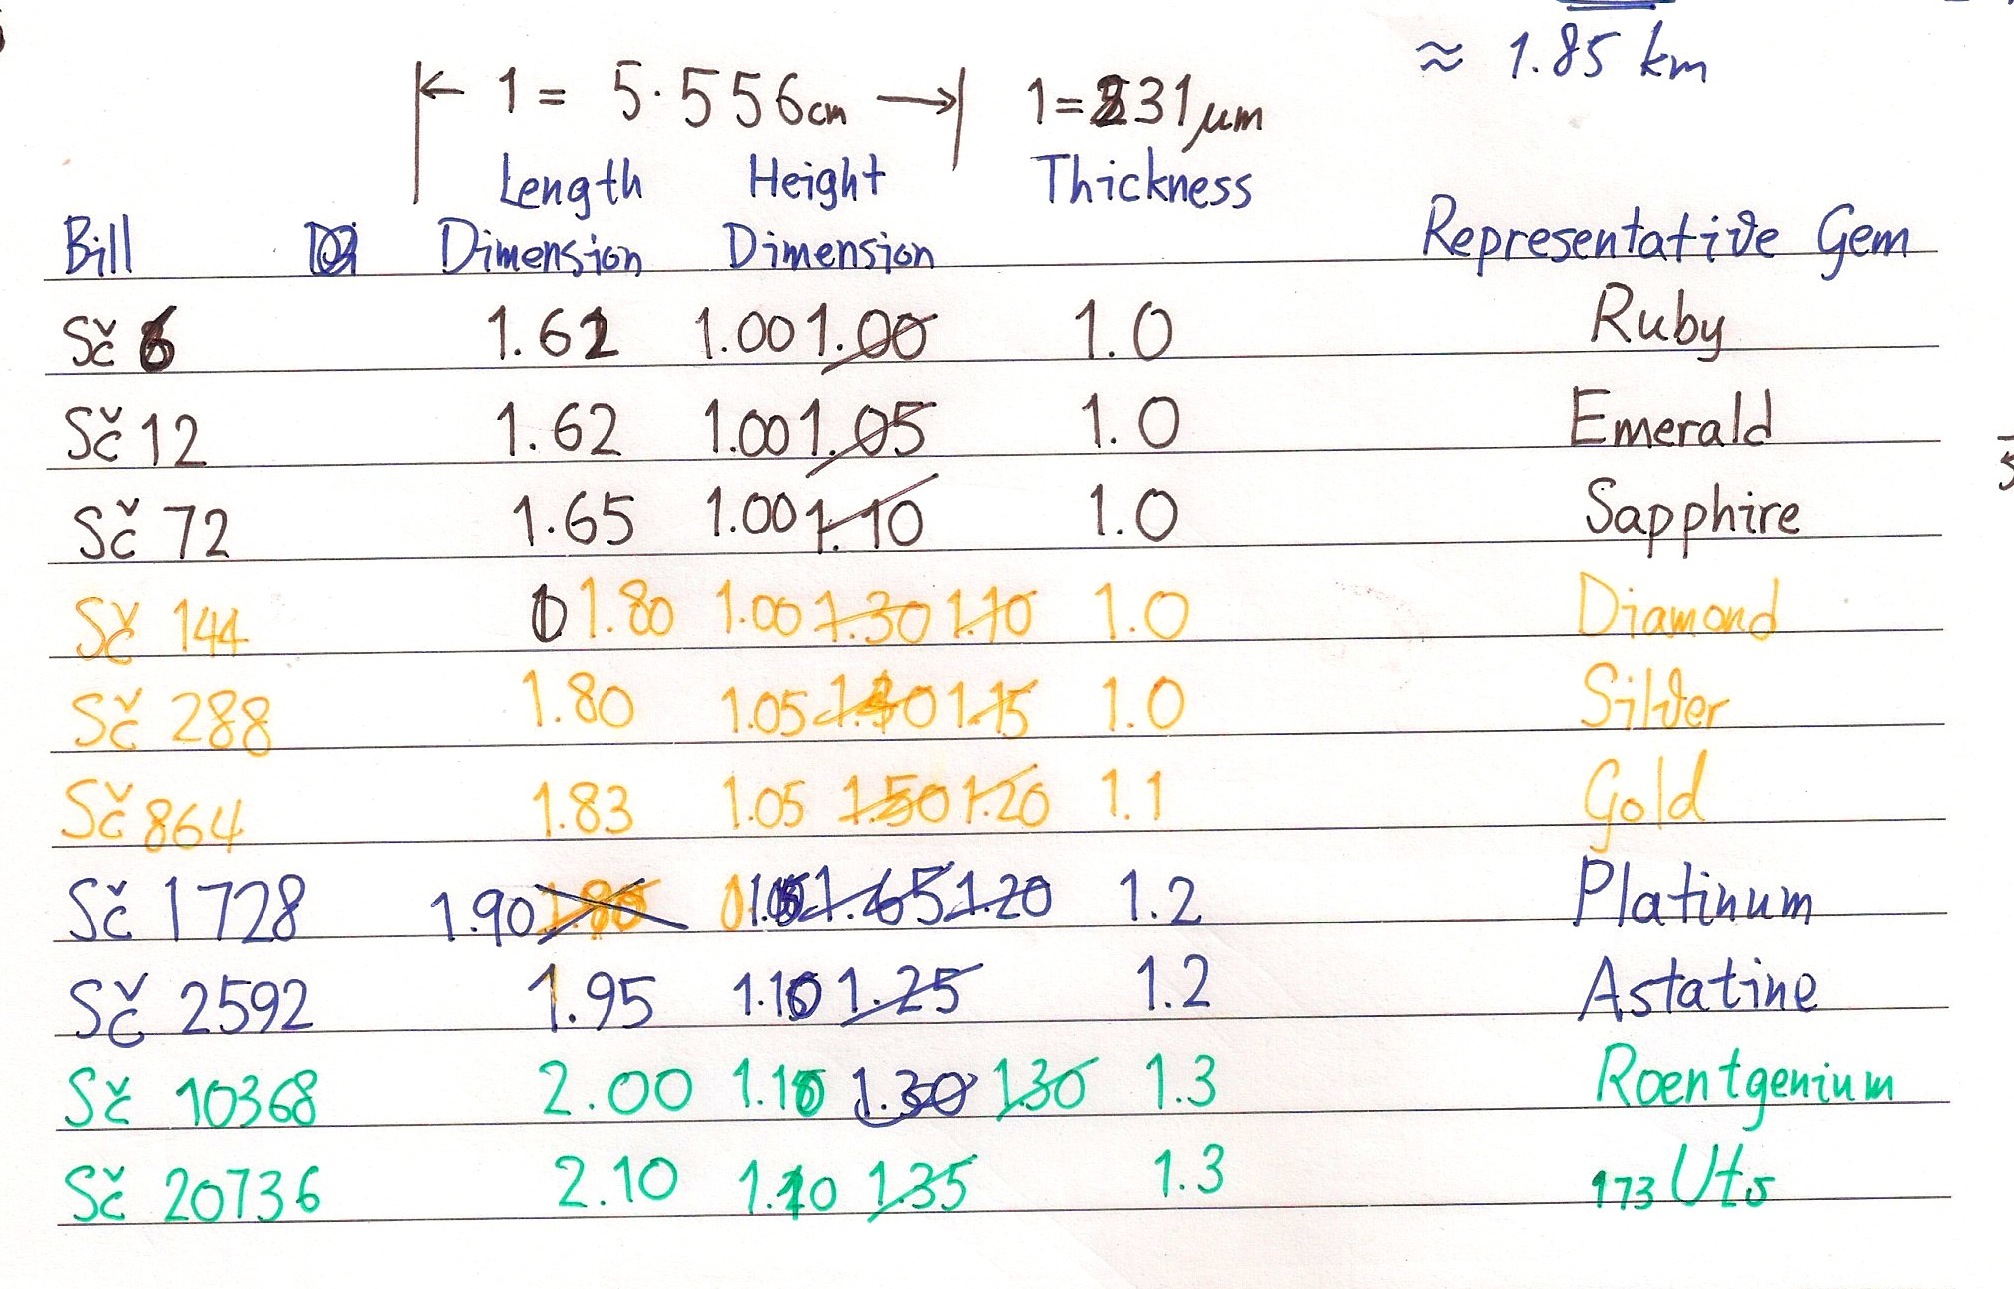 ≈ 1.85 km
1 = 5.556cm 1=231μm
Length Height Thickness
Bill Dimension Dimension Representative Gem
Sč 6 1.62 1.00 1.00 1.0 Ruby
Sč 12 1.62 1.00 1.05 1.0 Emerald
Sč 72 1.65 1.00 1.10 1.0 Sapphire
Sč 144 1.80 1.00 1.30 1.10 1.0 Diamond
Sč 288 1.80 1.05 1.15 1.0 Silver
Sč 864 1.83 1.05 1.50 1.20 1.1 Gold
Sč 1728 1.90 1.65 1.20 1.2 Platinum
Sč 2592 1.95 1.10 1.25 1.2 Astatine
Sč 10368 2.00 1.10 1.30 1.30 1.3 Roentgenium
Sč 20736 2.10 1.35 1.3 173Uts